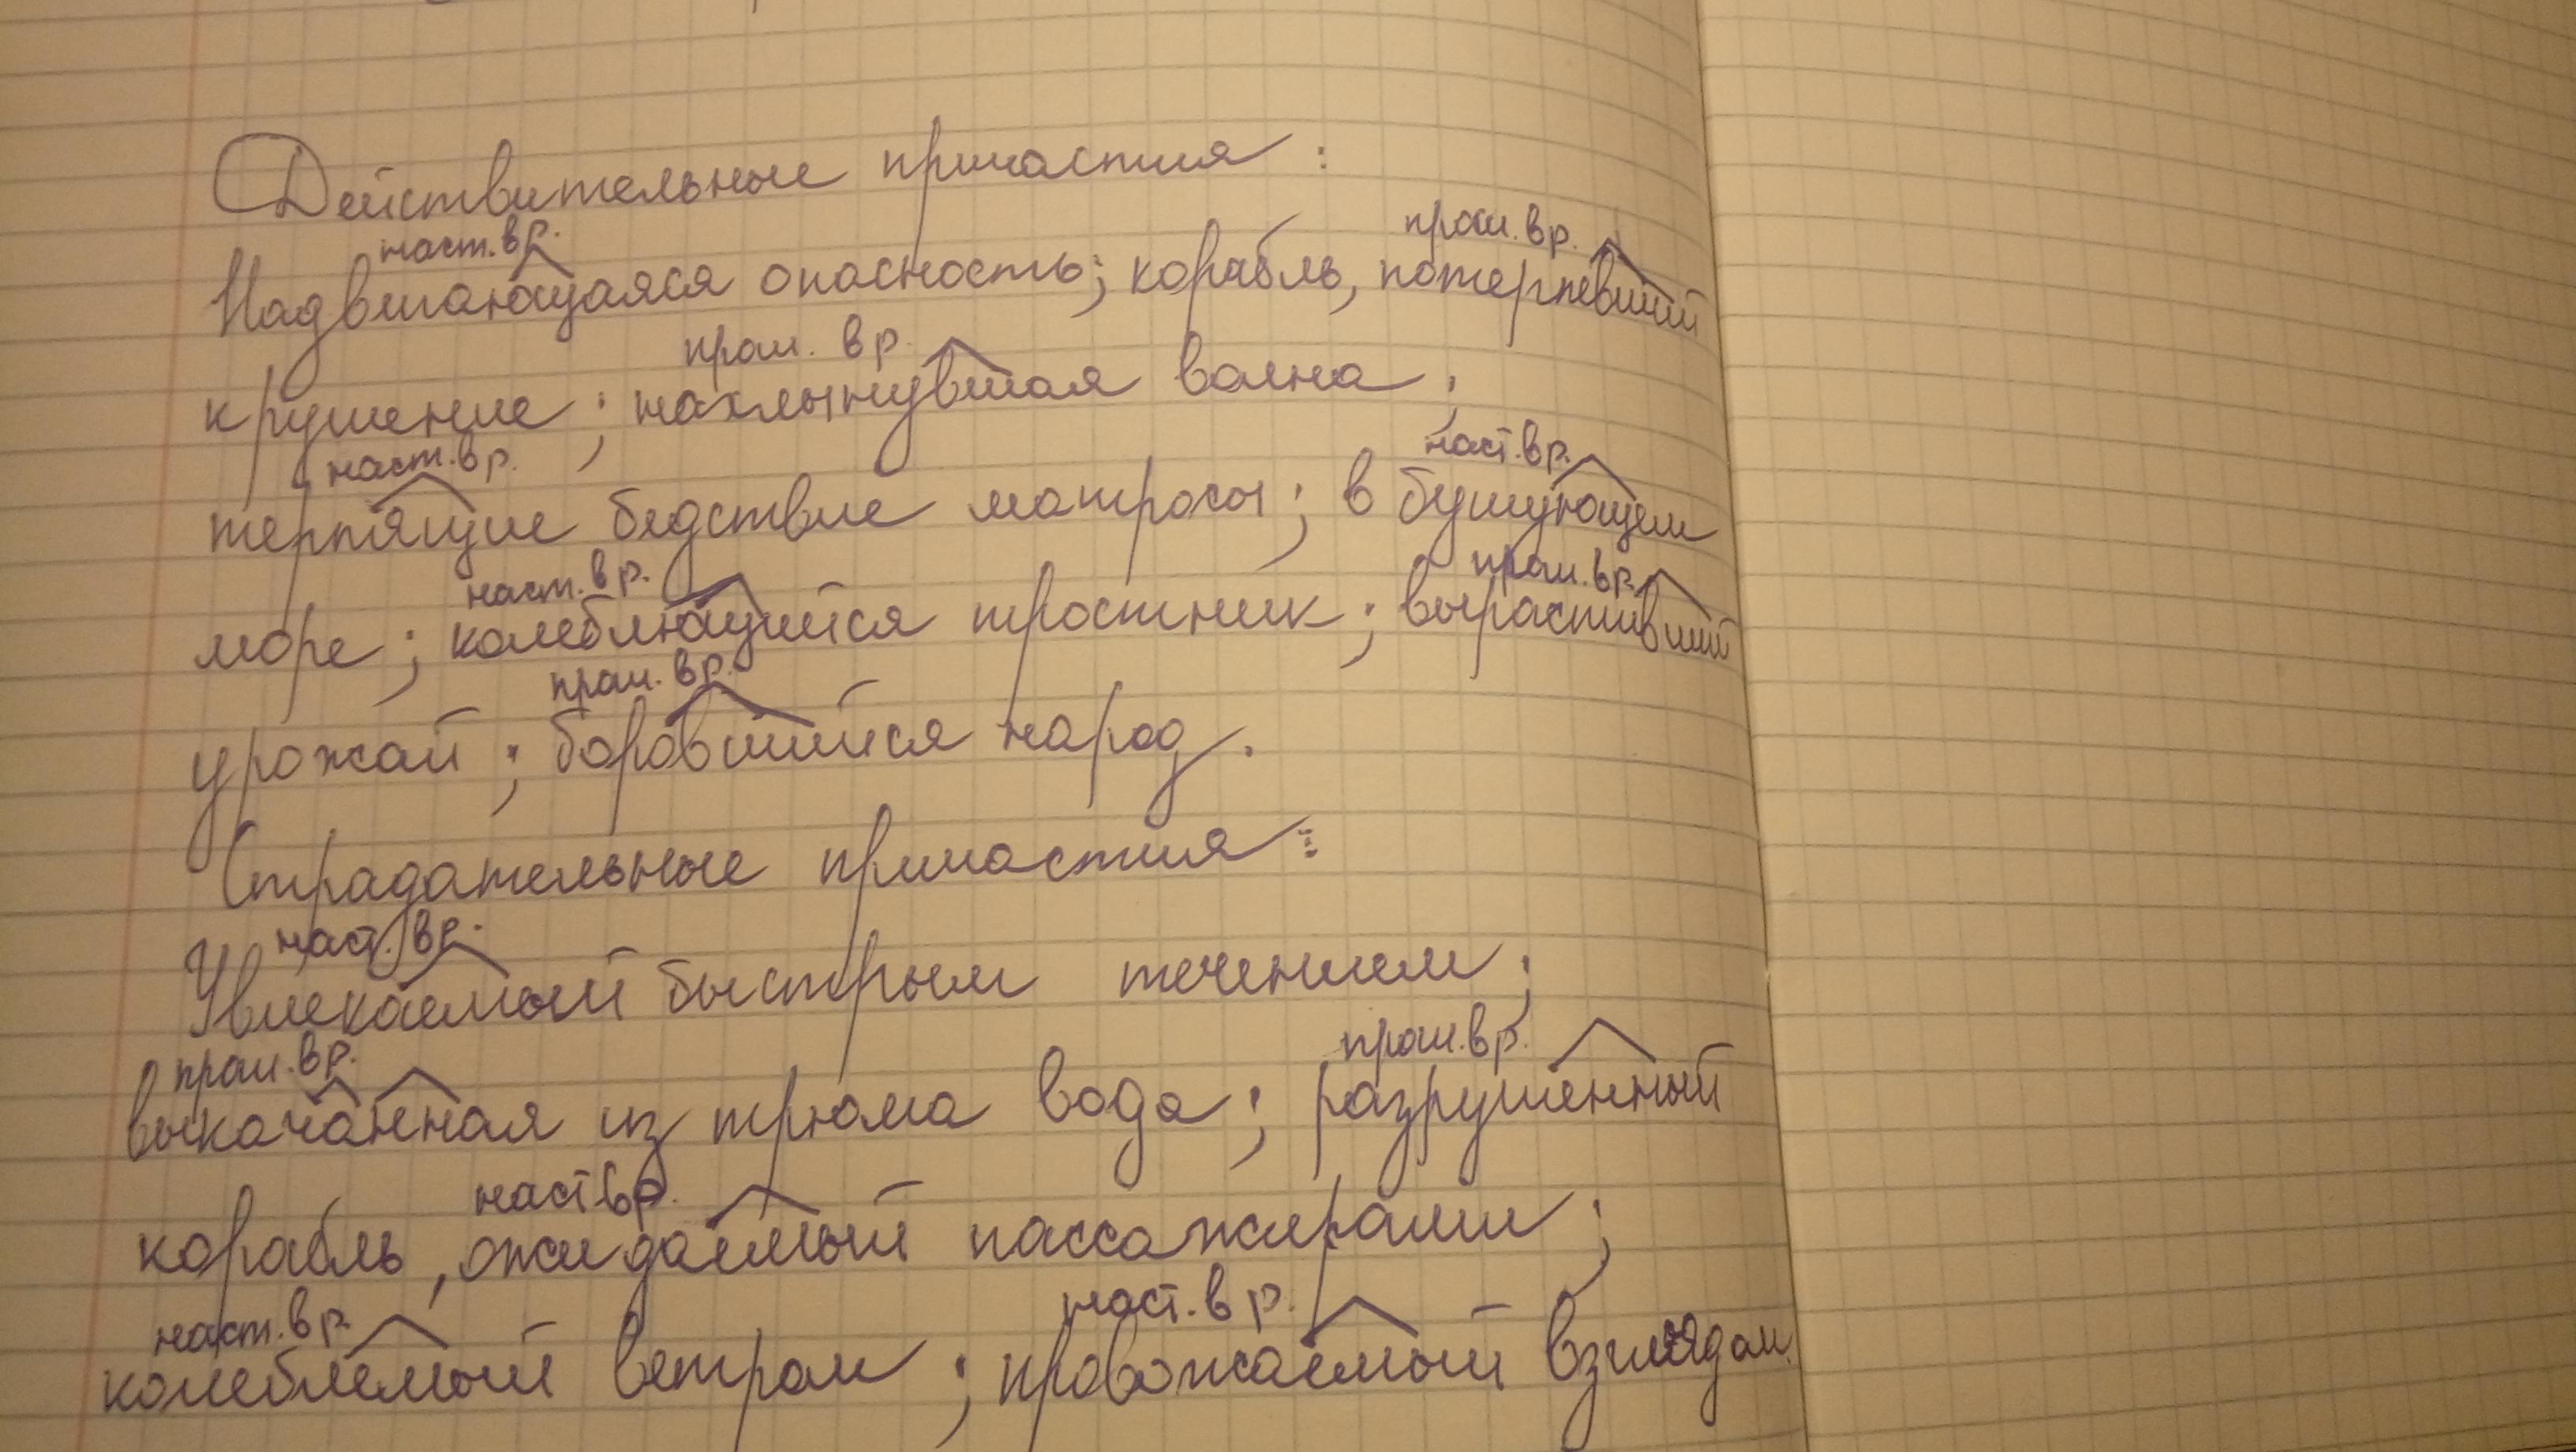 Действительные причастия:
наст. вр. прош. вр.
Надвигающаяся опасность; корабль, потерпевший
прош. вр.
крушение; нахлынувшая волна;
наст. вр. наст. вр.
терпящие бедствие матросы; в бушующем
наст. вр. прош. вр.
море; колеблющийся тростник; вырастивший
прош. вр.
урожай; боровшийся народ.
Страдательные причастия:
наст. вр.
Увлекаемый быстрым течением;
прош. вр. прош. вр.
выкачанная из трюма вода; разрушенный
наст вр.
корабль, ожидаемый пассажирами;
наст. вр. наст. вр.
колеблемый ветром; провожаемый взглядом.